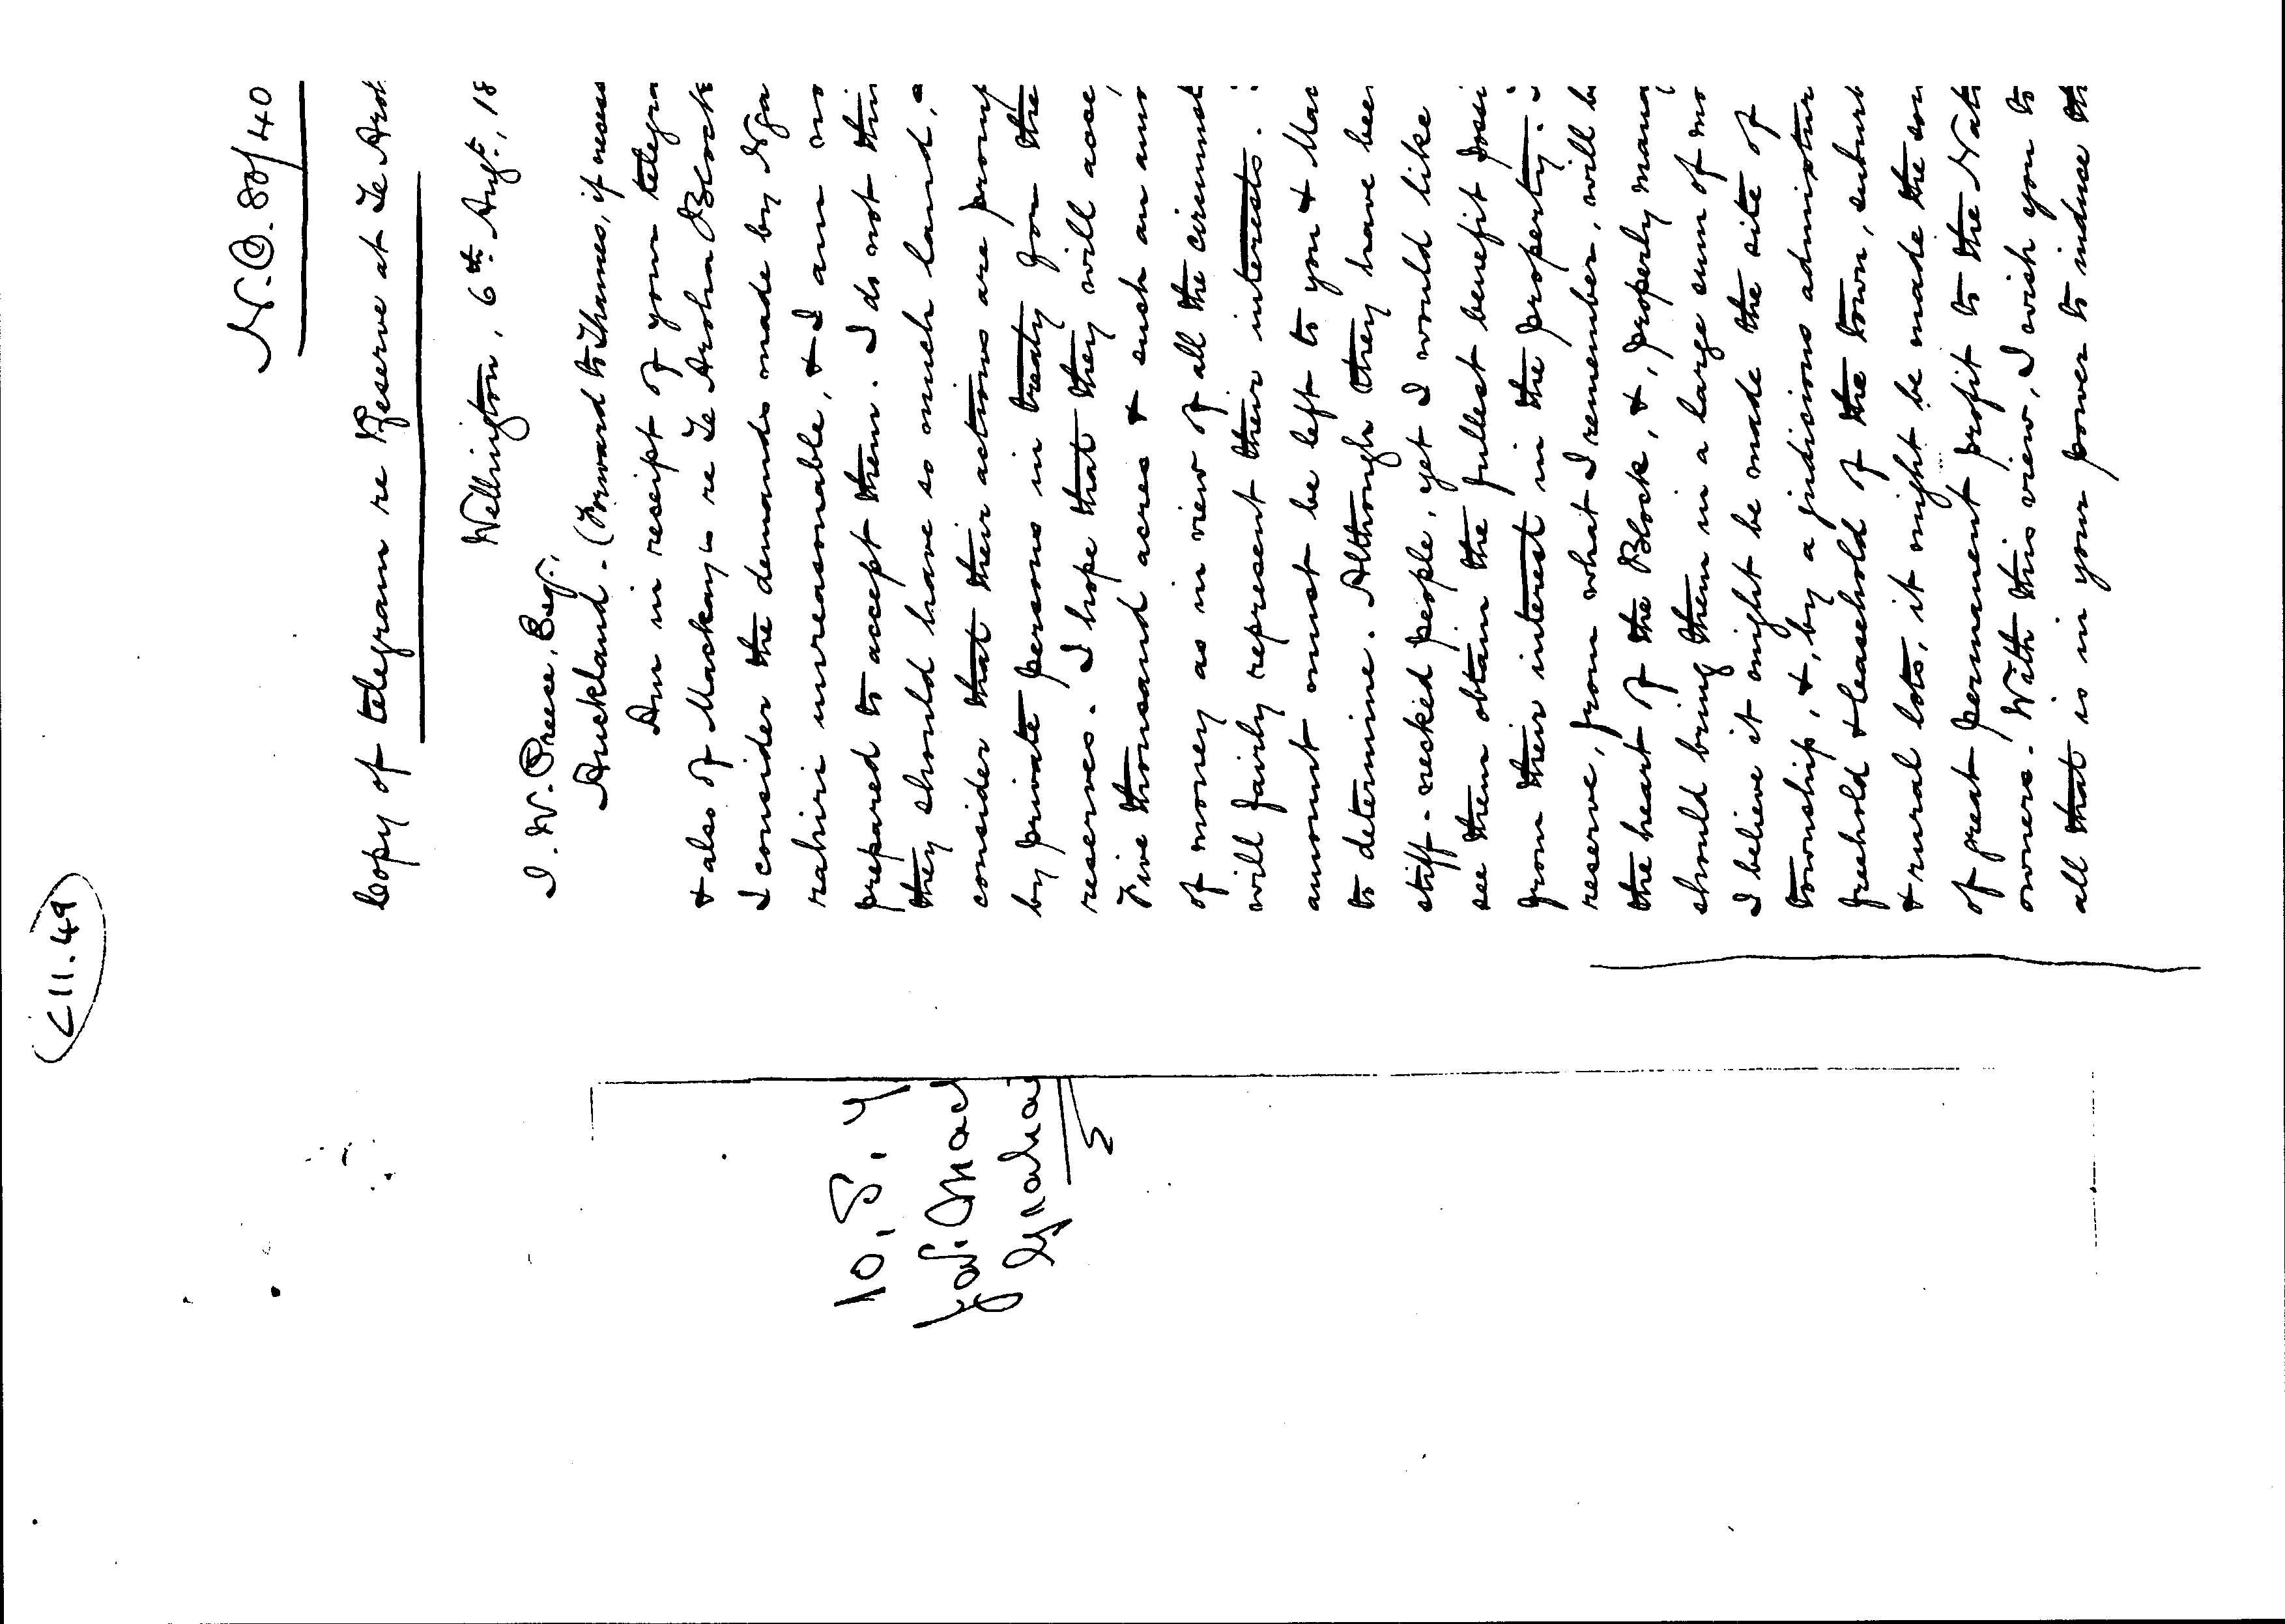 C11.49
N.O. 80/40
Copy of telegram re Reserve at Te Aroh
Wellington, 6th Augt., 18
J. W. Preece, Esq.,
Auckland - (Forward to Thames, if necess
Am in receipt of your telegra
& also of Mackay's re Te Aroha Block
I consider the demands made by Nga
rahiri unreasonable, & I am no
prepared to accept them. I do not thin
they should have so much land, a
consider that their actions are promp
by private persons in treaty for the
reserves. I hope that they will acce
Five thousand acres & such an amo
of money as in view of all the circumst
will fairly represent their interests.
amount must be left to you & Mac
to determine. Although they have bee
stiff-necked people, yet I would like
see them obtain the fullest benefit possi
from their interest in the property.
reserve, from what I remember, will b
the heart of the Block, &, properly mana
should bring them in a large sum of mo
I believe it might be made the site of
township, &, by a judicious administra
freehold & leasehold of the town, suburb
& rural lots, it might be made the sou
of great permanent profit to the Nati
owners. With this view, I wish you to
all that is in your power to induce th
10. 8. 4